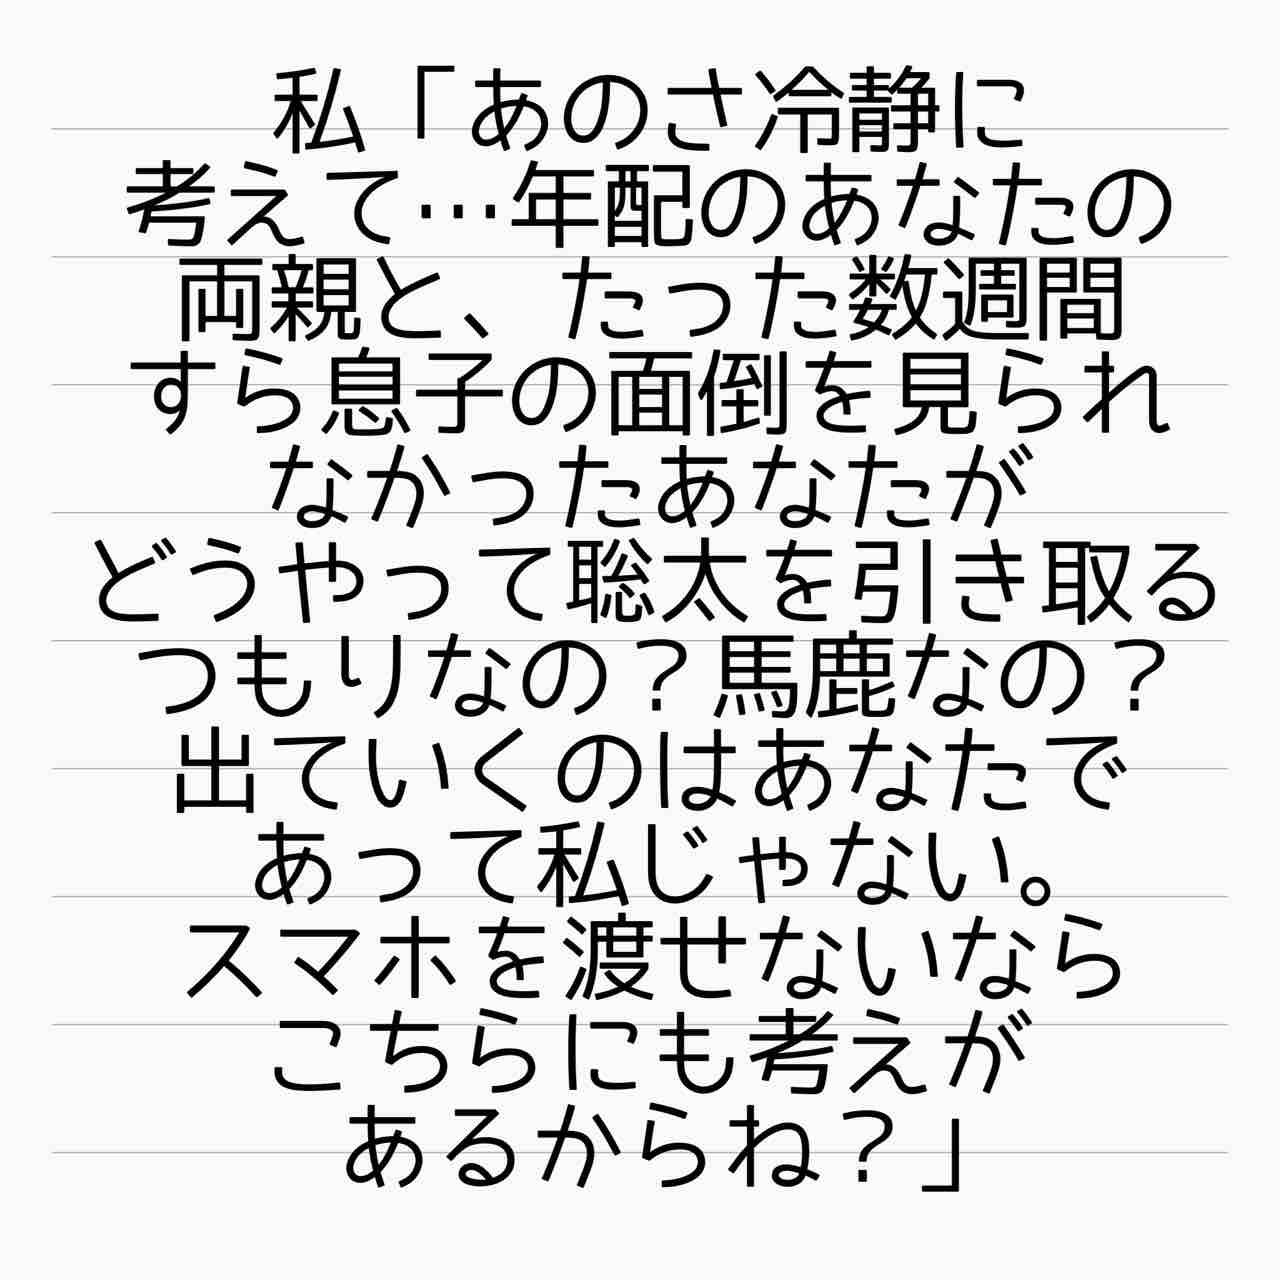 私「あのさ冷静に
考えて…年配のあなたの
両親と、たった数週間
すら息子の面倒を見られ
なかったあなたが
どうやって聡太を引き取る
つもりなの？馬鹿なの？
出ていくのはあなたで
あって私じゃない。
スマホを渡せないなら
こちらにも考えが
あるからね？」